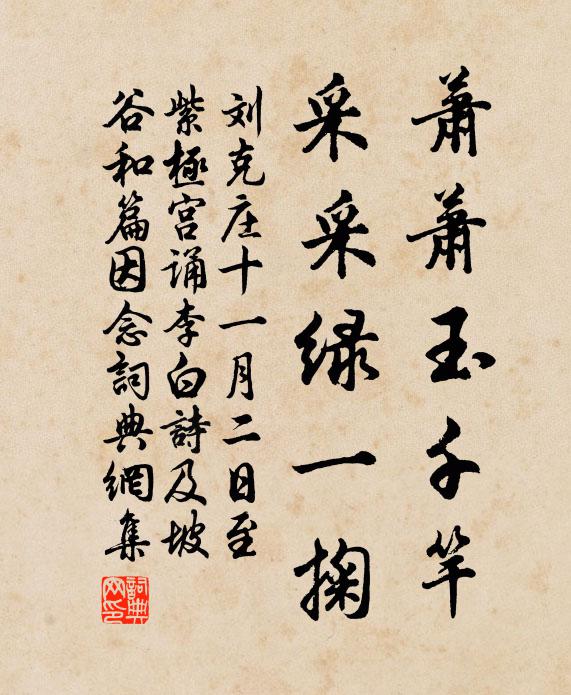 蕭蕭玉千竿
采采绿一掬
刘克庄十一月二日至
紫極宫诵李白詩及坡
谷和篇因念詞典網集
詞典网印